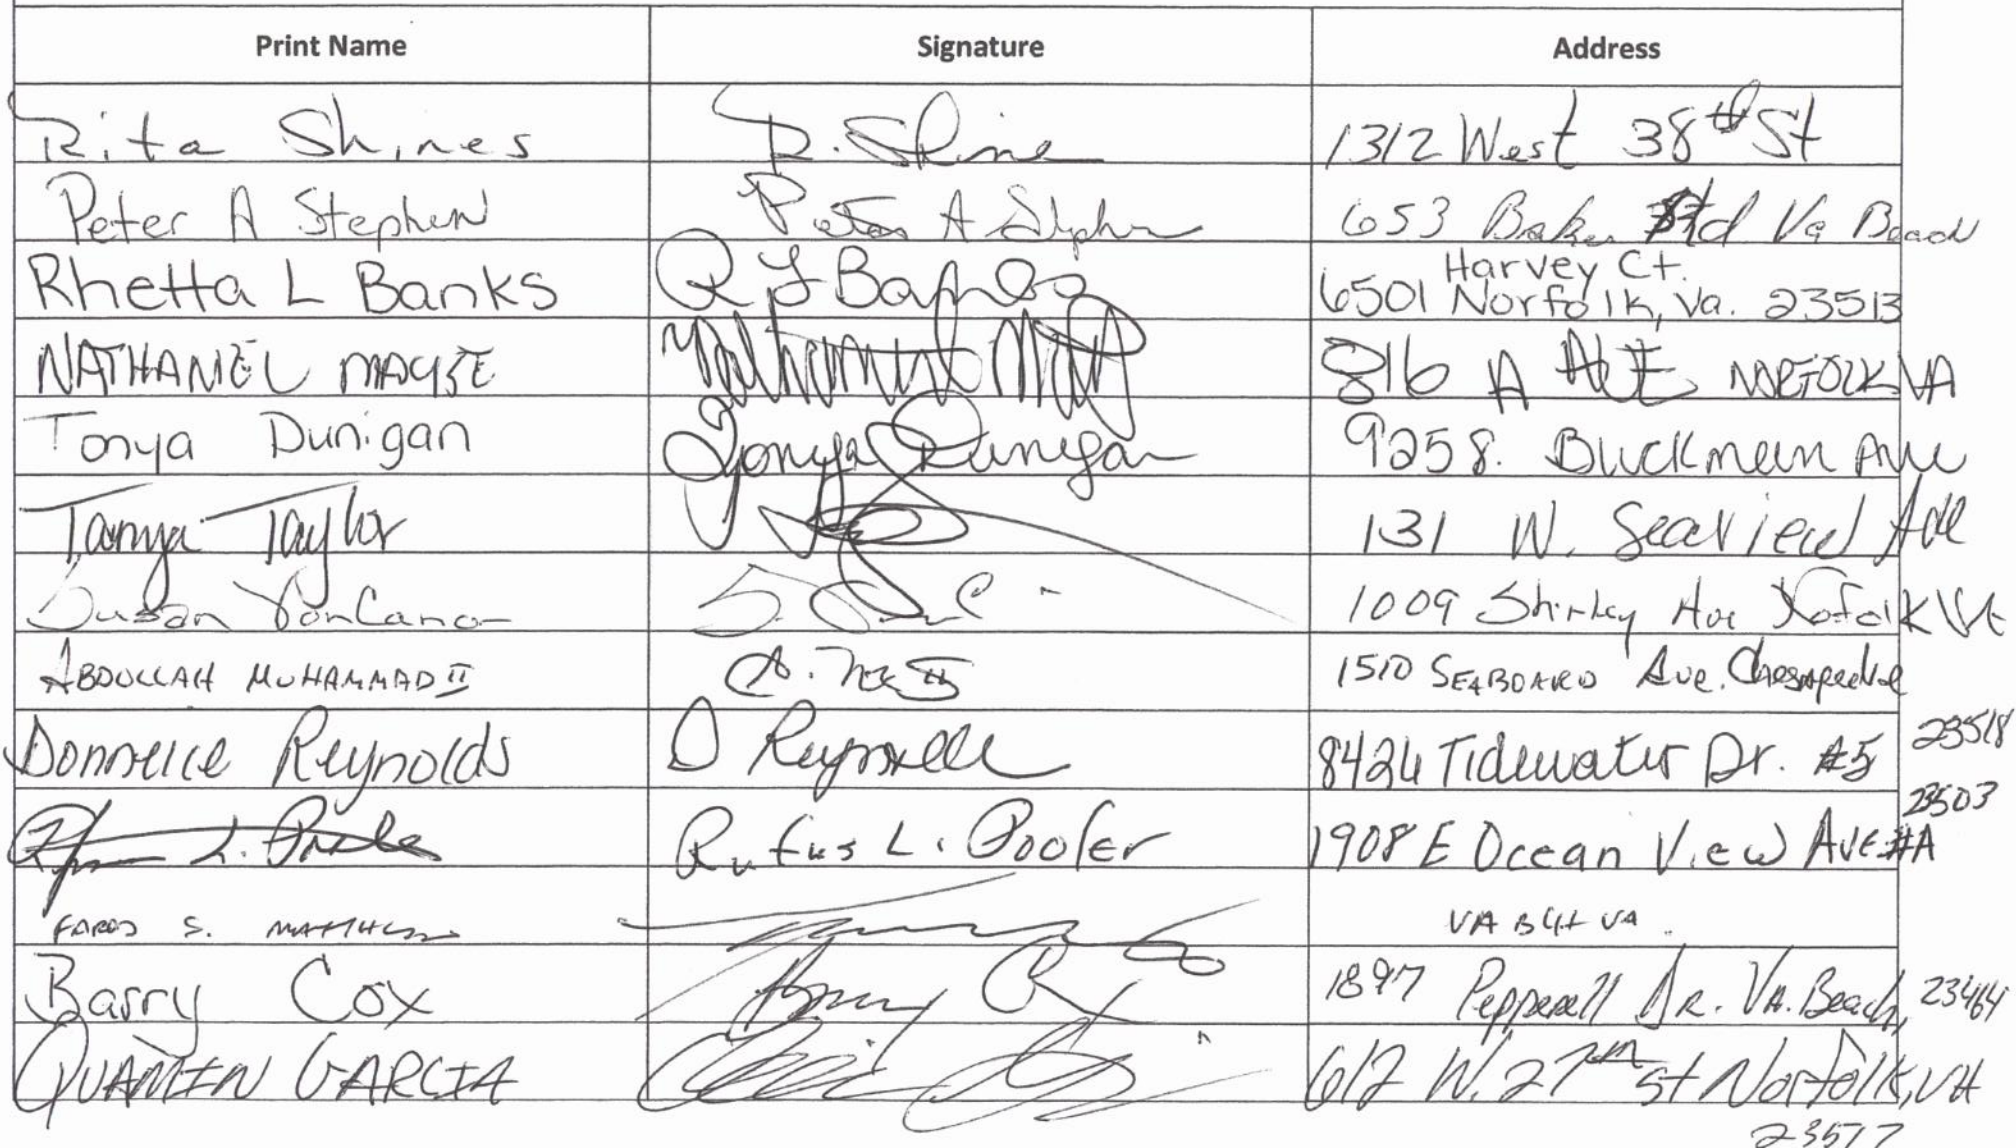 Print Name Signature Address
Rita Shines R. Shine 1312 West 38th St
Peter A Stephen Peter A Stephen 653 Baker Rd Va Beach
Harvey Ct.
Rhetta L Banks R L Banks 6501 Norfolk, Va. 23513
NATHANIEL 816 A NORFOLK VA
Tonya Dunigan Tonya Dunigan 9258. Buckman Ave
Tanya Taylor 131 W. Seaview Ave
Susan VonCanon 1009 Shirley Ave Nofolk VA
ABDULLAH MUHAMMAD II A. II 1510 SEABOARD Ave. Chesapeake
23518
Donneice Reynolds D Reynolds 8424 Tidewater Dr. #5
23503
L. Rufus L. Pooler 1908 E Ocean View Ave #A
S. VA BCH VA
Barry Cox Barry Cox 1897 Pepperell DR. VA. Beach, 23464
QUAMIN GARCIA 612 W. 27th St Norfolk, VA
23517